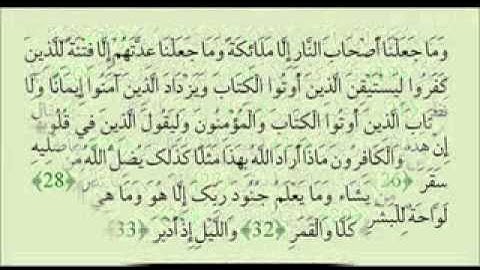 وَمَا جَعَلْنَا أَصْحَابَ النَّارِ إِلَّا مَلَائِكَةً وَمَا جَعَلْنَا عِدَّتَهُمْ إِلَّا فِتْنَةً لِّلَّذِينَ
كَفَرُوا لِيَسْتَيْقِنَ الَّذِينَ أُوتُوا الْكِتَابَ وَيَزْدَادَ الَّذِينَ آمَنُوا إِيمَانًا وَلَا
الَّذِينَ أُوتُوا الْكِتَابَ وَالْمُؤْمِنُونَ وَلِيَقُولَ الَّذِينَ فِي
إِنْ وَالْكَافِرُونَ مَاذَا أَرَادَ اللَّهُ بِهَذَا مَثَلًا كَذَلِكَ يُضِلُّ اللَّهُ
سَقَرَ ﴿26﴾ يَشَاءُ وَمَا يَعْلَمُ جُنُودَ رَبِّكَ إِلَّا هُوَ وَمَا هِيَ ﴿28﴾
لَوَّاحَةٌ لِّلْبَشَرِ كَلَّا وَالْقَمَرِ ﴿32﴾ وَاللَّيْلِ إِذْ أَدْبَرَ ﴿33﴾